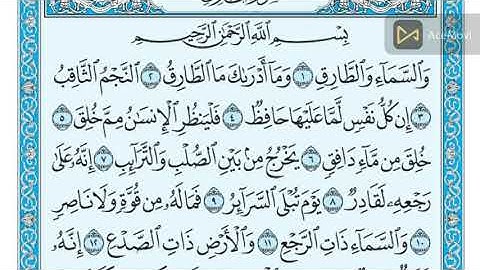 AceMovi
بِسْمِ اللَّهِ الرَّحْمَٰنِ الرَّحِيمِ
وَالسَّمَاءِ وَالطَّارِقِ ١ وَمَا أَدْرَىٰكَ مَا الطَّارِقُ ٢ النَّجْمُ الثَّاقِبُ
٣ إِن كُلُّ نَفْسٍ لَّمَّا عَلَيْهَا حَافِظٌ ٤ فَلْيَنظُرِ الْإِنسَٰنُ مِمَّ خُلِقَ ٥
خُلِقَ مِن مَّاءٍ دَافِقٍ ٦ يَخْرُجُ مِن بَيْنِ الصُّلْبِ وَالتَّرَائِبِ ٧ إِنَّهُ عَلَىٰ
رَجْعِهِ لَقَادِرٌ ٨ يَوْمَ تُبْلَى السَّرَائِرُ ٩ فَمَا لَهُ مِن قُوَّةٍ وَلَا نَاصِرٍ
١٠ وَالسَّمَاءِ ذَاتِ الرَّجْعِ ١١ وَالْأَرْضِ ذَاتِ الصَّدْعِ ١٢ إِنَّهُ